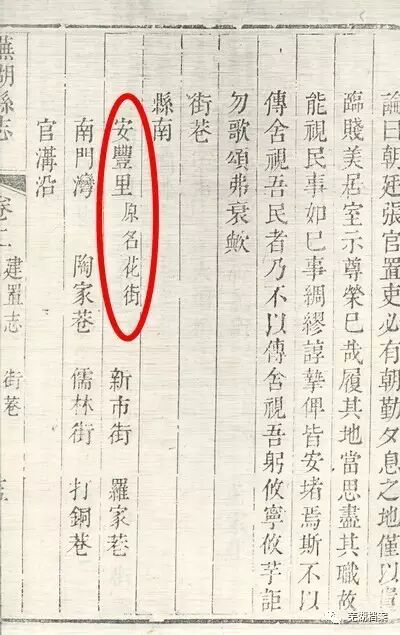 論曰朝廷張官置吏必有朝勤夕息之地僅以賁
臨賤美居室示尊榮巳哉履其地當思盡其職故
能視民事如巳事綢繆諄摯俾皆安堵焉斯不以
傳舍視吾民者乃不以傳舍視吾躬攸寧攸芋詎
勿歌頌弗衰歟
街巷
縣南
安豐里原名花街 新市街 羅家巷
南門灣 陶家巷 儒林街 打銅巷
官溝沿
蕪湖縣志 卷二 建置志 街巷
芜湖档案